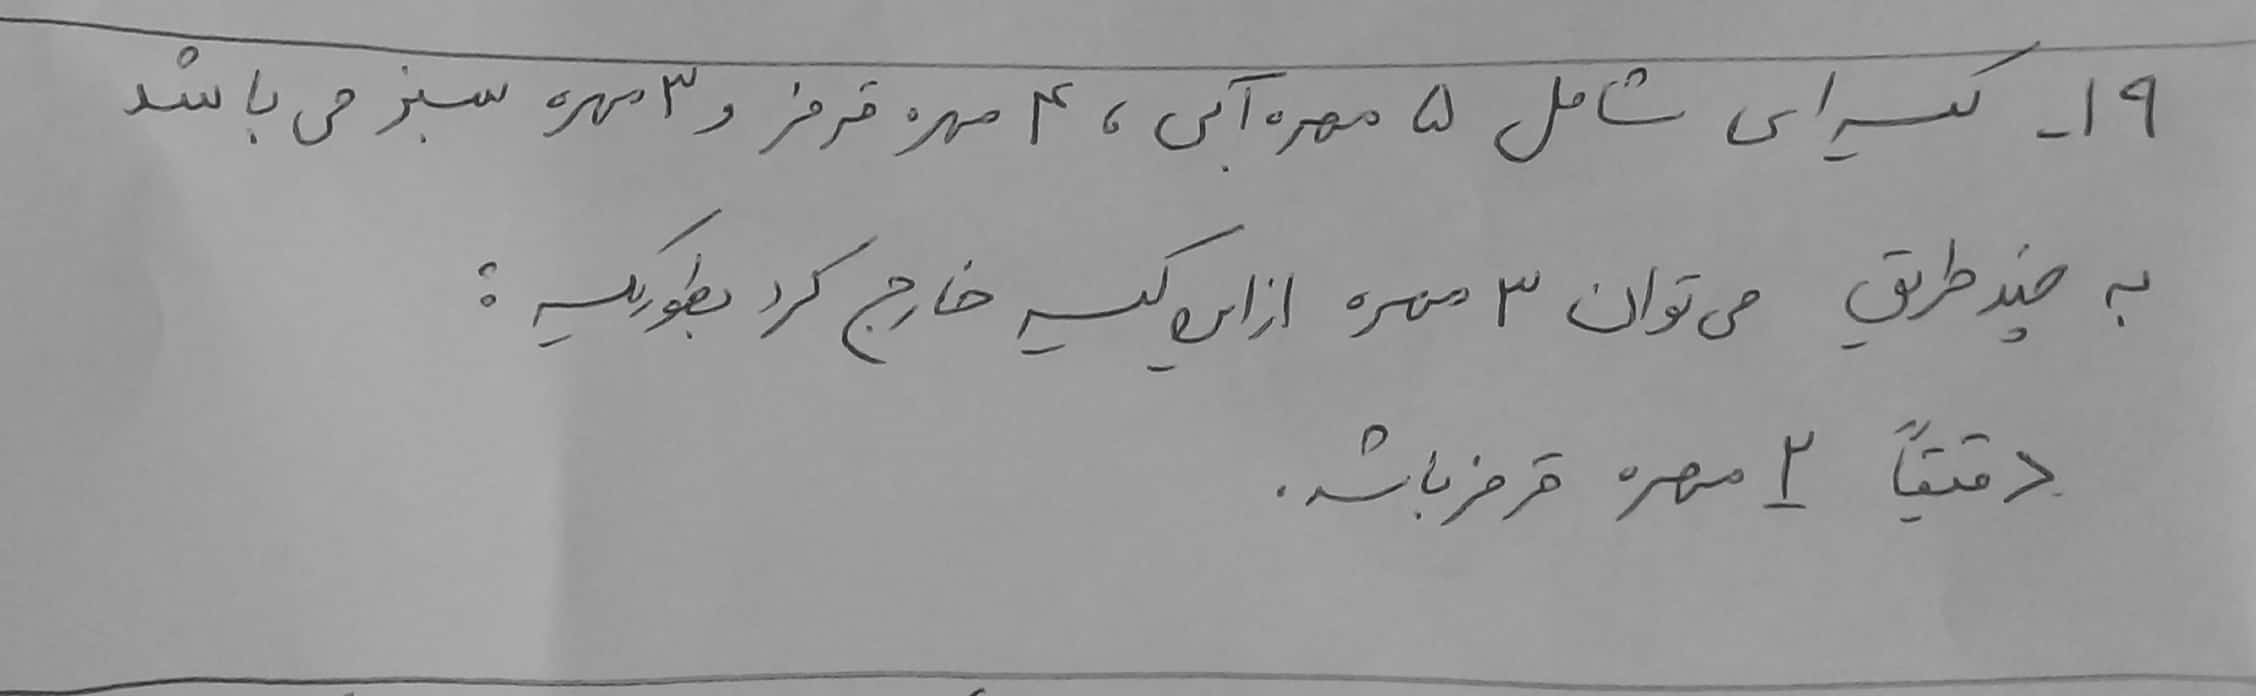 ۱۹- کیسه ای شامل ۵ مهره آبی ، ۴ مهره قرمز و ۳ مهره سبز می باشد
به چند طریق می توان ۳ مهره از این کیسه خارج کرد بطوریکه :
دقیقاً ۲ مهره قرمز باشد.